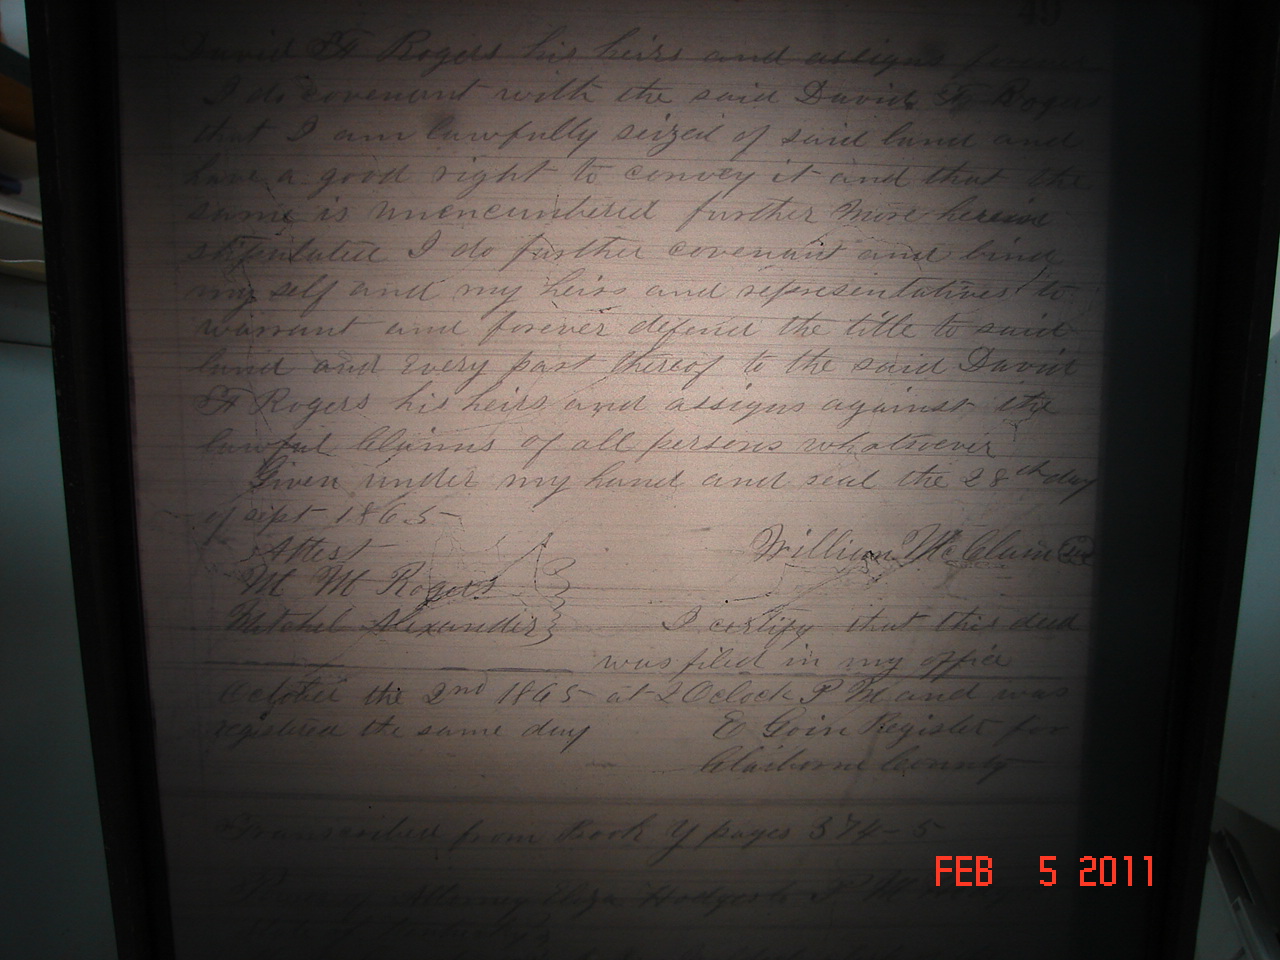 49
David F Rogers his heirs and assigns forever
I do covenant with the said David F Rogers
that I am lawfully seized of said land and
have a good right to convey it and that the
same is unencumbered further more herein
stipulated I do further covenant and bind
my self and my heirs and representatives to
warrant and forever defend the title to said
land and Every part thereof to the said David
F Rogers his heirs and assigns against the
lawful Claims of all persons whatsoever
Given under my hand and seal the 28th day
of sept 1865
Attest
William McClain
M M Rogers
Mitchel Alexander
I certify that this deed
was filed in my office
October the 2nd 1865 at 2 Oclock P M and was
registered the same day
E Goin Register for
Claiborne County
Transcribed from Book Y pages 374-5
Attorney Eliza
State of
FEB 5 2011